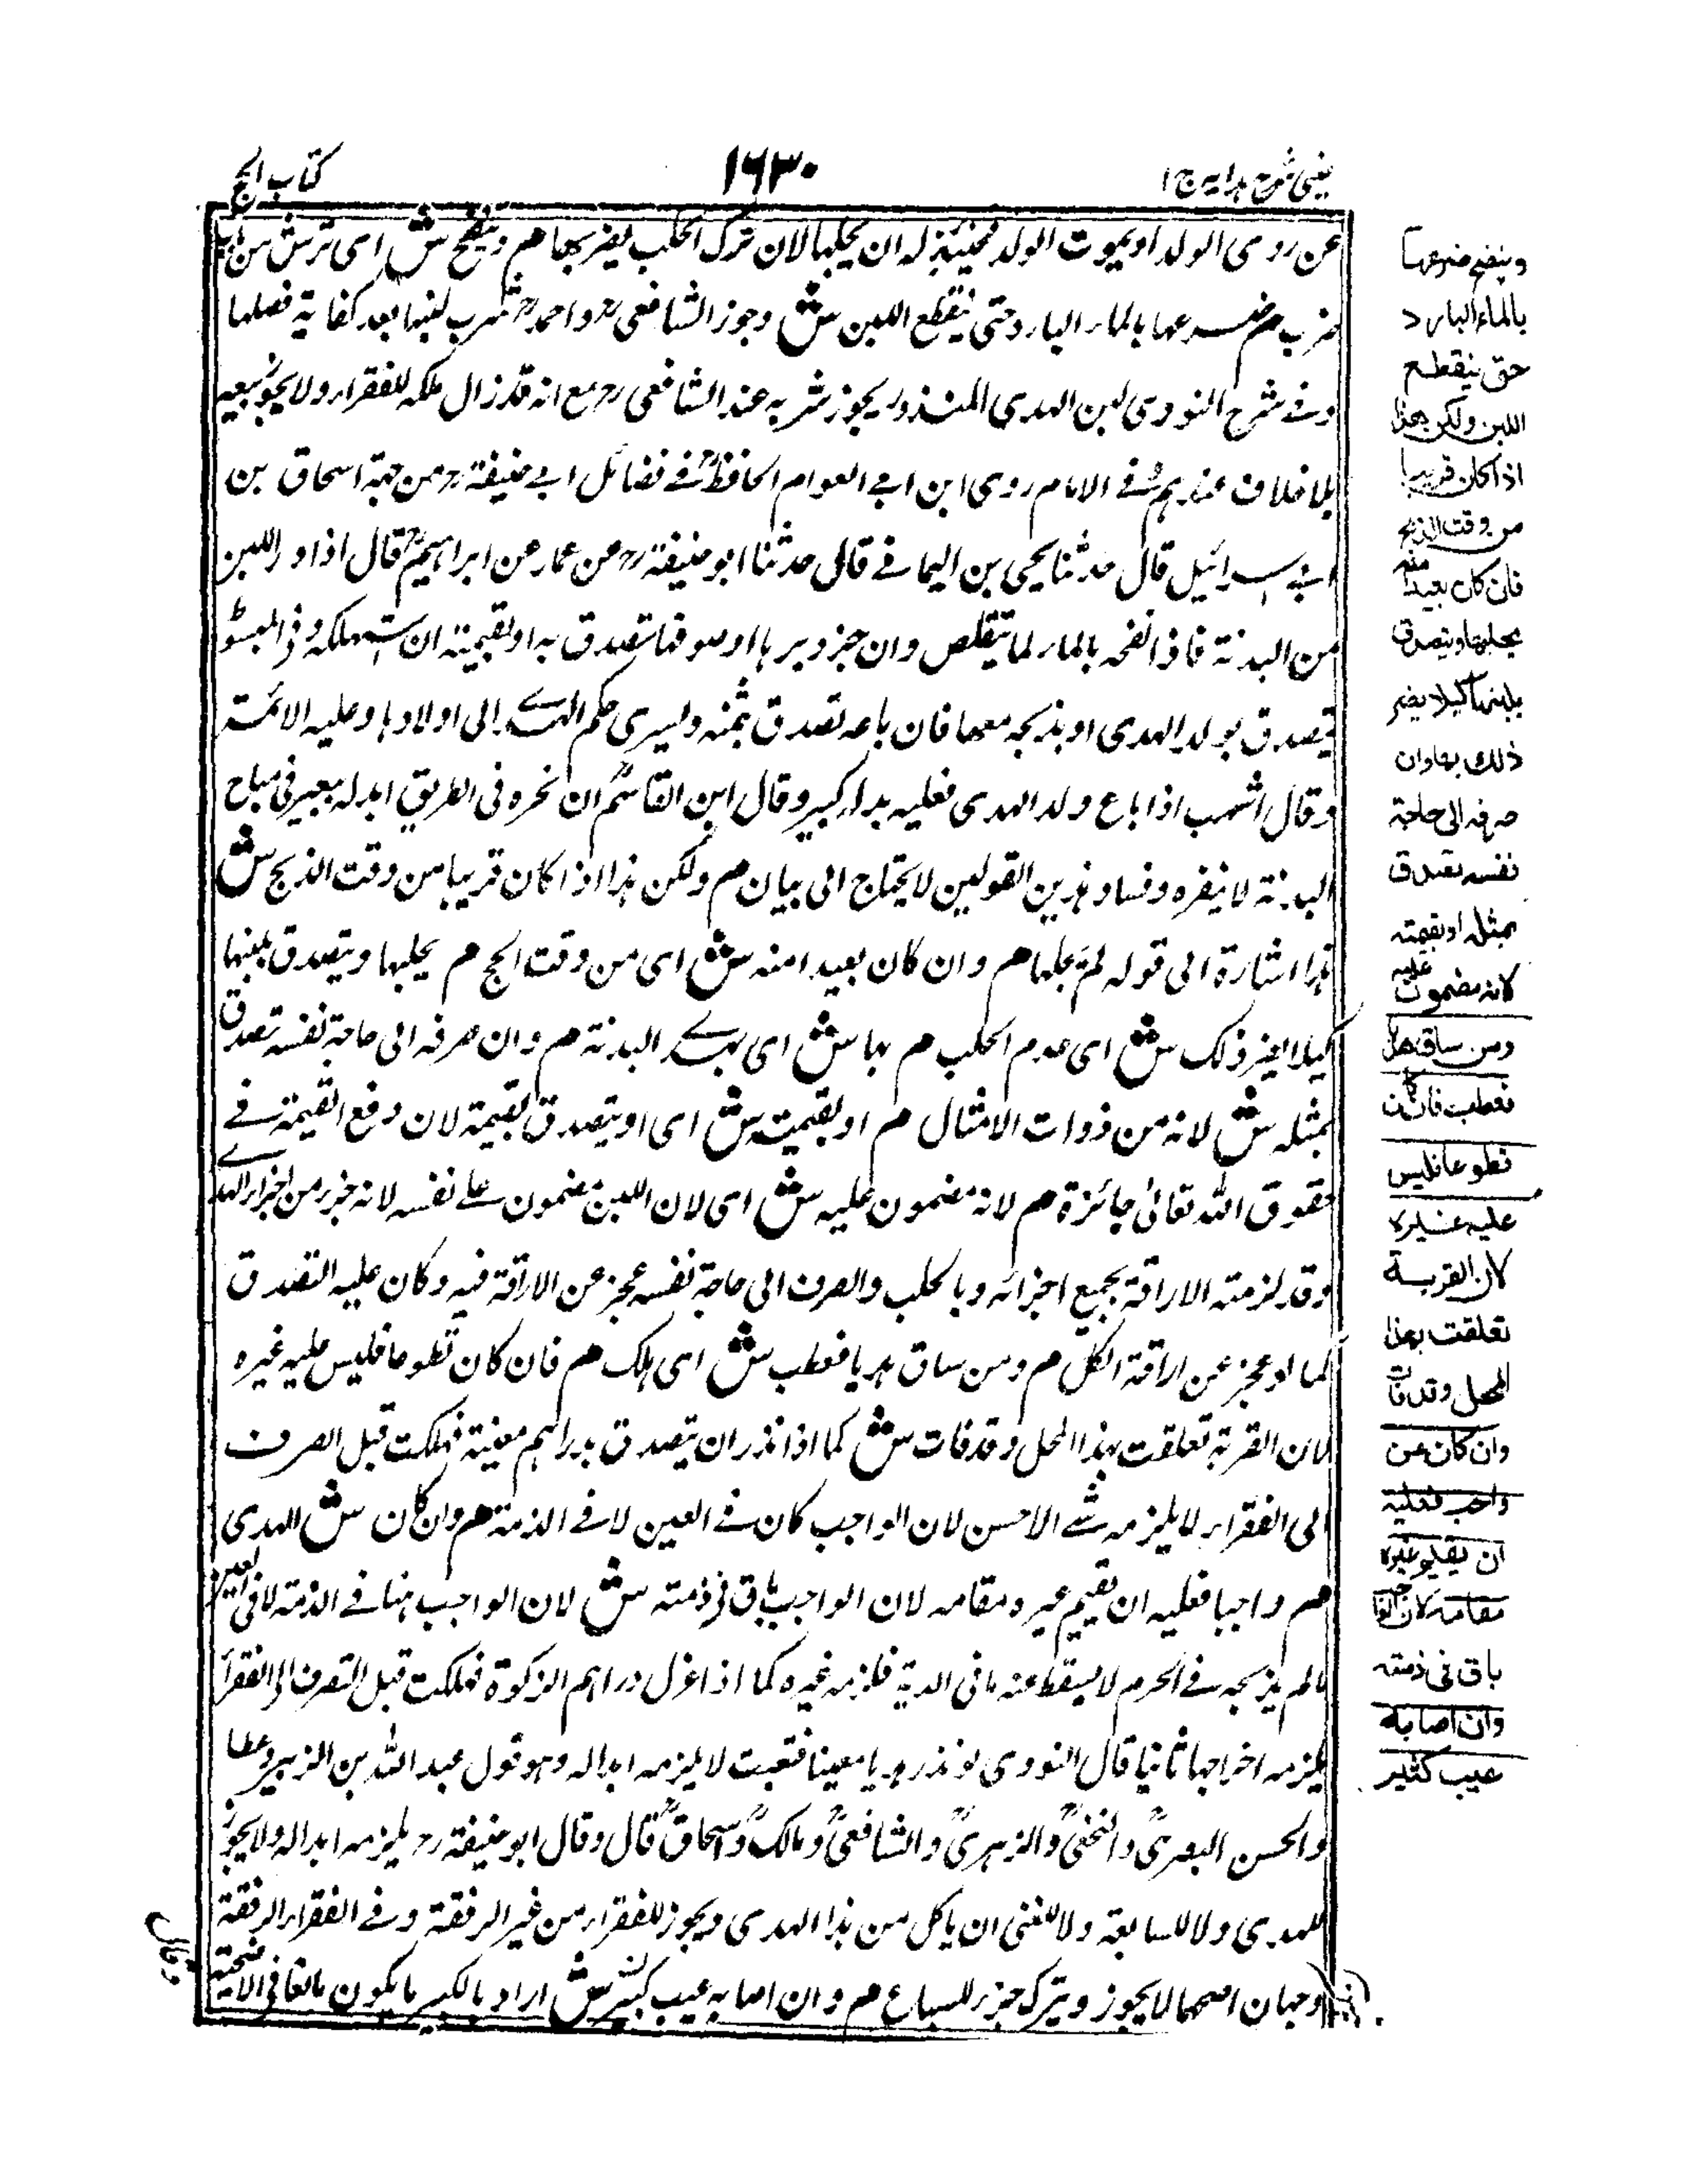 عینی شرح ہدایہ ج ۱
۱۶۳۰
کتاب الحج
عن روى الولد او يموت الولد فحينئذ له ان يحلبها لان ترك الحلب يضر بها هم وينضح ش اى ترش من باب
ضرب هم ضرعها بالماء البارد حتى ينقطع اللبن ش وجوز الشافعى رح واحمد رح شرب لبنها بعد كفاية فصلها
وفى شرح النووى لبن الهدى المنذور يجوز شربه عند الشافعى رح مع انه قد زال ملكه للفقراء ولا يجوز بيعه
بلا خلاف عندهم وفى الامام روى ابن ابى العوام الحافظ رح فى فضائل ابى حنيفة رح من جهة اسحاق بن
ابى اسرائيل قال حدثنا يحيى بن اليمانى قال حدثنا ابو حنيفة رح عن عمار عن ابراهيم رح قال اذا در اللبن
من البدنة فاذا نضحه بالماء لما يتقلص وان جز وبرها او صوفها تصدق به او بقيمته ان استهلكه وفى المبسوط
يتصدق بولد الهدى او يذبحه معها فان باعه تصدق بثمنه ويسرى حكم الهدى الى اولادها وعليه الائمة
وقال اشهب اذا باع ولد الهدى فعليه بدل كبير وقال ابن القاسم رح ان نحره فى الطريق ابدله ببعير فى مباح
البدنة لا ينفره وفساد هذين القولين لا يحتاج الى بيان هم ولكن هذا اذا كان قريبا من وقت الذبح ش
هذا اشارة الى قوله لم يحلبها هم وان كان بعيدا منه ش اى من وقت الحج هم يحلبها ويتصدق بلبنها
كيلا يضر ذلك ش اى عدم الحلب هم بها ش اى بهذه البدنة هم وان صرفه الى حاجة نفسه تصدق
بمثله ش لانه من ذوات الامثال هم او بقيمته ش اى او يتصدق بقيمة لان دفع القيمة فى
حقوق الله تعالى جائزة هم لانه مضمون عليه ش اى لان اللبن مضمون على نفسه لانه جزء من اجزاء الهدى
وقد لزمته الاراقة بجميع اجزائه وبالحلب والصرف الى حاجة نفسه عجز عن الاراقة فيه وكان عليه التصدق
كما لو عجز عن اراقة الكل هم ومن ساق هديا فعطب ش اى هلك هم فان كان تطوعا فليس عليه غيره
لان القربة تعلقت بهذا المحل وقد فات ش كما اذا نذر ان يتصدق بدراهم معينة فهلكت قبل الصرف
الى الفقراء لا يلزمه شئ الاحسن لان الواجب كان فى العين لا فى الذمة هم وان كان ش الهدى
هم واجبا فعليه ان يقيم غيره مقامه لان الواجب باق فى ذمته ش لان الواجب هنا فى الذمة لا فى العين
مالم يذبحه فى الحرم لا يسقط عنه ما فى الذمة فلزمه غيره كما اذا عزل دراهم الزكوة فهلكت قبل التصرف الى الفقراء
يلزمه اخراجها ثانيا قال النووى لو نذر هديا معينا فتعبت لا يلزمه ابداله وهو قول عبد الله بن الزبير وعطا
والحسن البصرى رح والنخعى رح والزهرى رح والشافعى رح ومالك رح واسحاق رح قال وقال ابو حنيفة رح يلزمه ابداله ولا يجوز
للمهدى ولا للسابقة ولا للغنى ان ياكل من هذا الهدى ويجوز للفقراء من غير الرفقة وفى الفقراء الرفقة
وجهان اصحهما لا يجوز ويترك جزر للسباع هم وان اصابه عيب كثير ش اراد بالكبير ما يكون مانعا فى الاضحية
وينضح ضرعها
بالماء البارد
حتى ينقطع
اللبن ولكن هذا
اذا كان قريبا
من وقت الذبح
فان كان بعيدا منه
يحلبها ويتصدق
بلبنها كيلا يضر
ذلك بها وان
صرفه الى حاجة
نفسه تصدق
بمثله او بقيمته
لانه مضمون عليه
ومن ساق هديا
فعطب فان كان
تطوعا فليس
عليه غيره
لان القربة
تعلقت بهذا
المحل وقد فات
وان كان عن
واجب فعليه
ان يقيم غيره
مقامه لان الواجب
باق فى ذمته
وان اصابه
عيب كثير